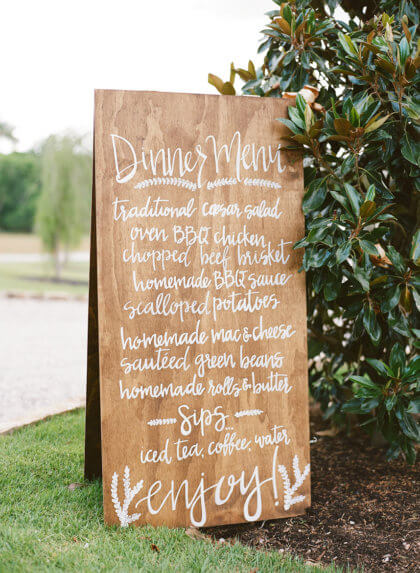 Dinner Menu
traditional caesar salad
oven BBQ chicken
chopped beef brisket
homemade BBQ sauce
scalloped potatoes
homemade mac & cheese
sautéed green beans
homemade rolls & butter
sips...
iced tea, coffee, water
enjoy!